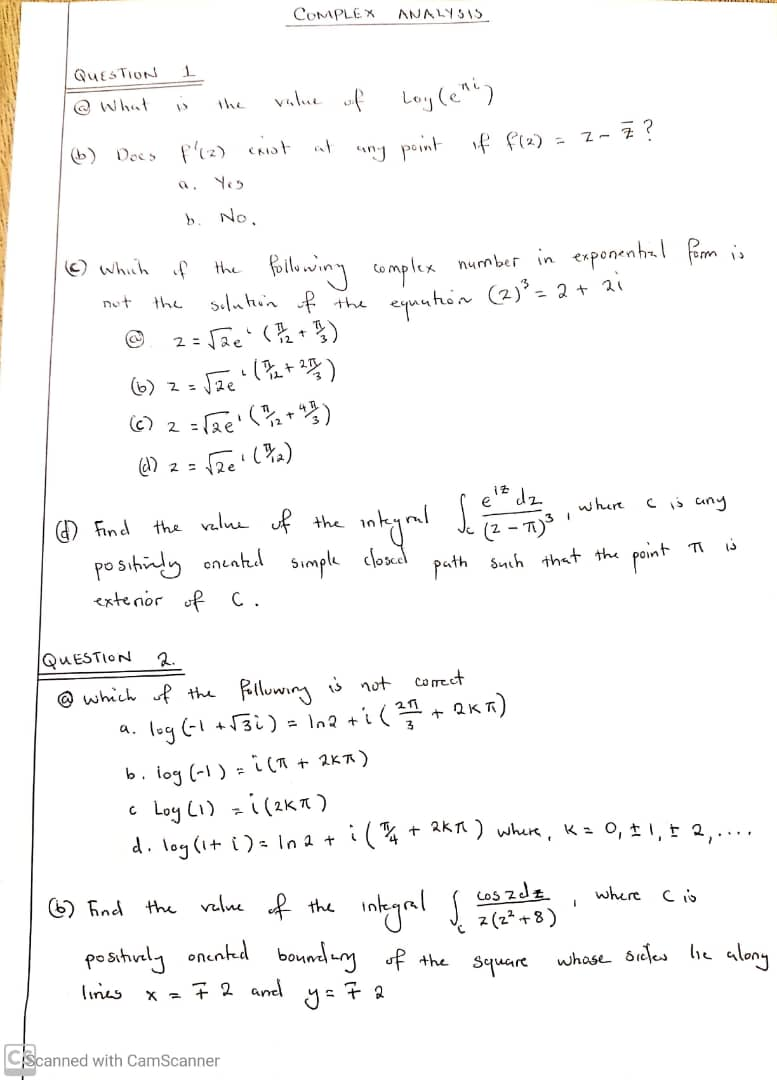 COMPLEX ANALYSIS
QUESTION 1
ⓐ What is the value of Log(e^πi)
(b) Does f'(z) exist at any point if f(z) = z - z̄ ?
a. Yes
b. No.
(c) which of the following complex number in exponential form is
not the solution of the equation (z)³ = 2 + 2i
ⓐ z = √2e^i (π/12 + π/3)
(b) z = √2e^i (π/12 + 2π/3)
(c) z = √2e^i (π/12 + 4π/3)
(d) z = √2e^i (π/12)
(d) Find the value of the integral ∫_c e^iz dz / (z - π)³ , where c is any
positively oriented simple closed path such that the point π is
exterior of C.
QUESTION 2.
ⓐ which of the following is not correct
a. log (-1 + √3i) = ln2 + i (2π/3 + 2kπ)
b. log (-1) = i (π + 2kπ)
c Log (1) = i (2kπ)
d. log (1 + i) = ln 2 + i (π/4 + 2kπ) where, k = 0, ±1, ± 2, ....
(b) Find the value of the integral ∫_c cos z dz / z(z² + 8) , where C is
positively oriented boundary of the square whose sides lie along
lines x = ∓ 2 and y = ∓ 2
CS Scanned with CamScanner